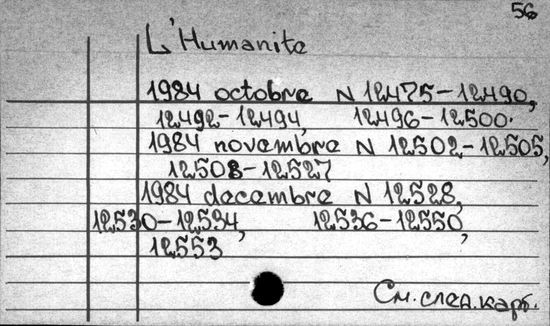 56
L'Humanite
1984 octobre N 12475-12490,
12492-12494, 12496-12500.
1984 novembre N 12502-12505,
12508-12527
1984 decembre N 12528,
12530-12534, 12536-12550,
12553
См. след. карт.